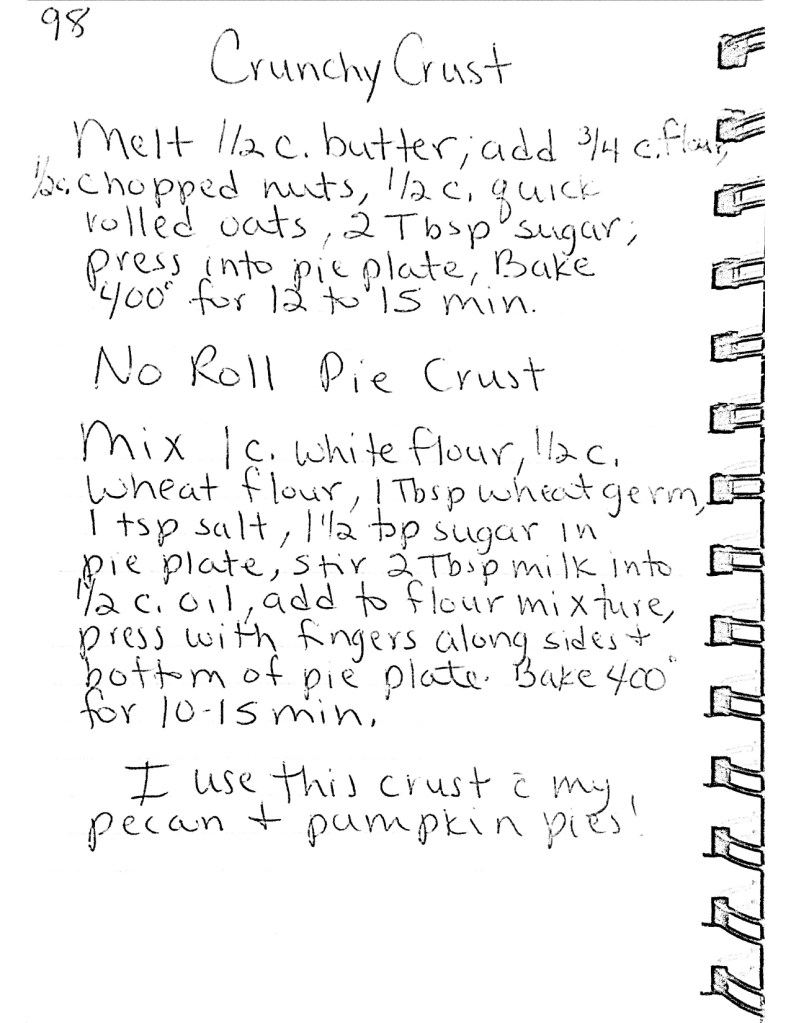 98
Crunchy Crust
Melt 1/2 c. butter, add 3/4 c. flour,
1/2 c. chopped nuts, 1/2 c. quick
rolled oats, 2 Tbsp sugar;
press into pie plate, Bake
400° for 12 to 15 min.
No Roll Pie Crust
Mix 1 c. white flour, 1/2 c.
wheat flour, 1 Tbsp wheat germ,
1 tsp salt, 1 1/2 tsp sugar in
pie plate, stir 2 Tbsp milk into
1/2 c. oil, add to flour mixture,
press with fingers along sides +
bottom of pie plate. Bake 400°
for 10-15 min.
I use this crust c̄ my
pecan + pumpkin pies!